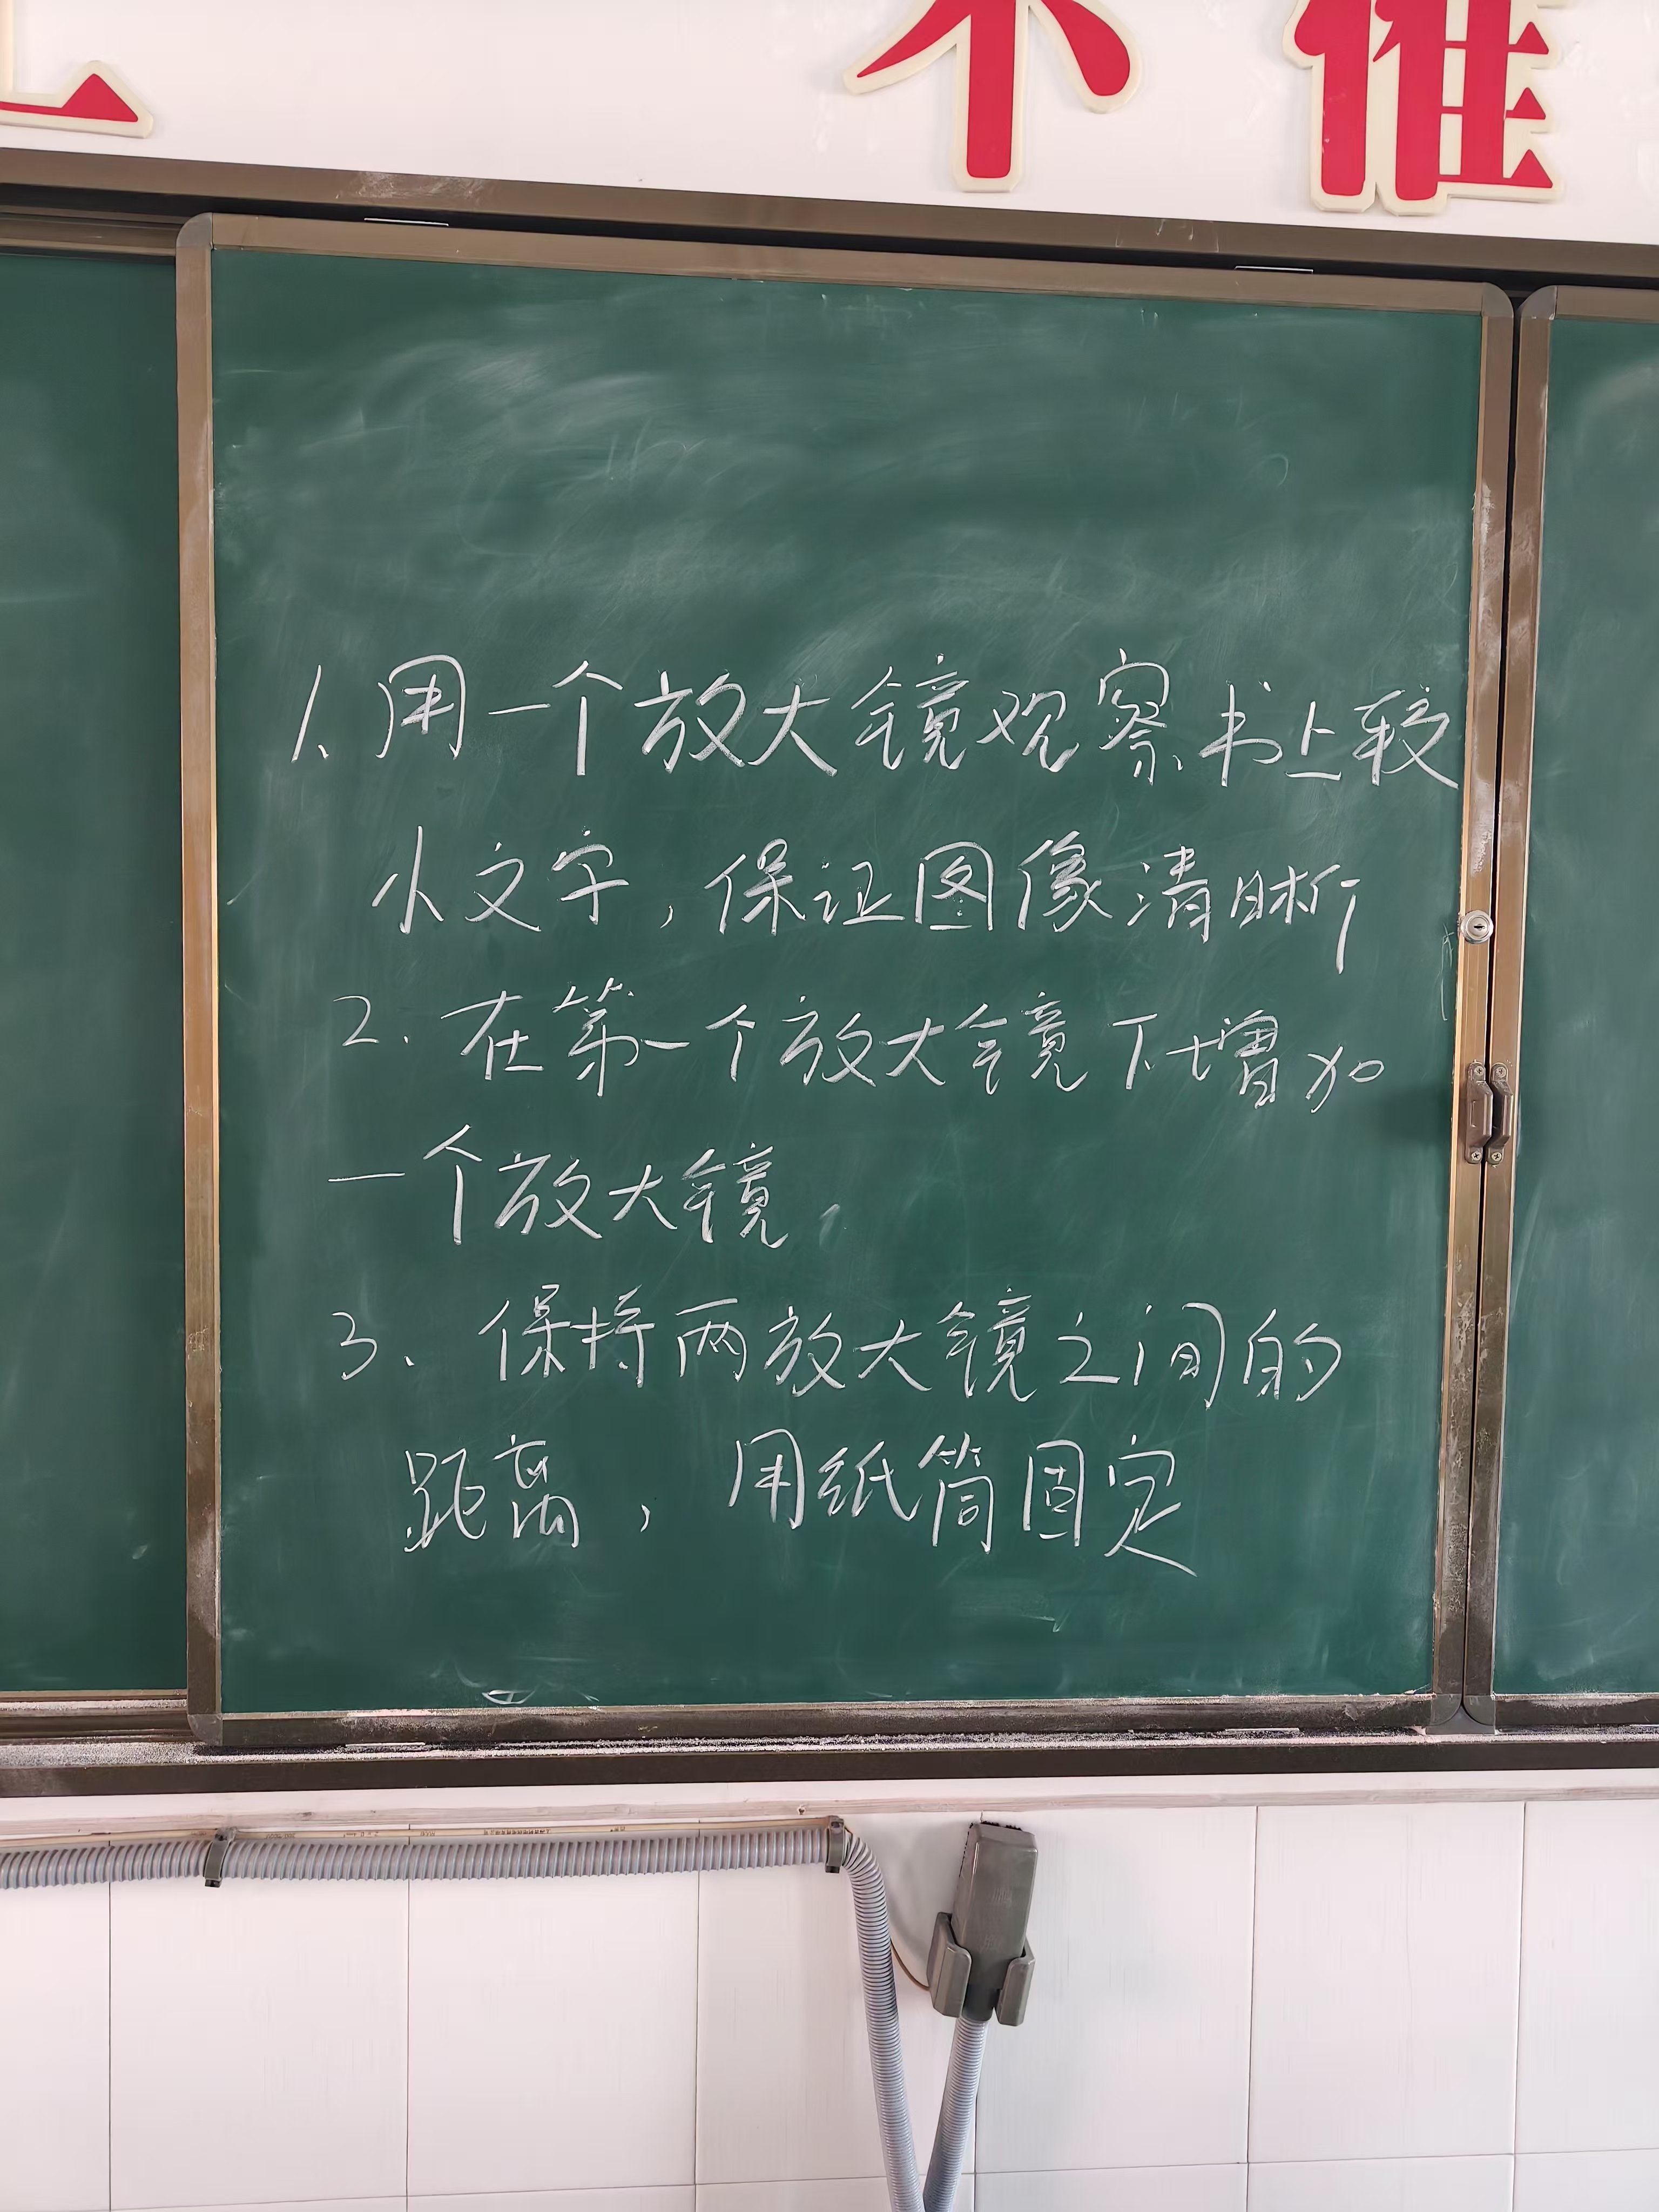 不 催
1、用一个放大镜观察书上较
小文字，保证图像清晰
2. 在第一个放大镜下增加
一个放大镜，
3、保持两放大镜之间的
距离，用纸筒固定